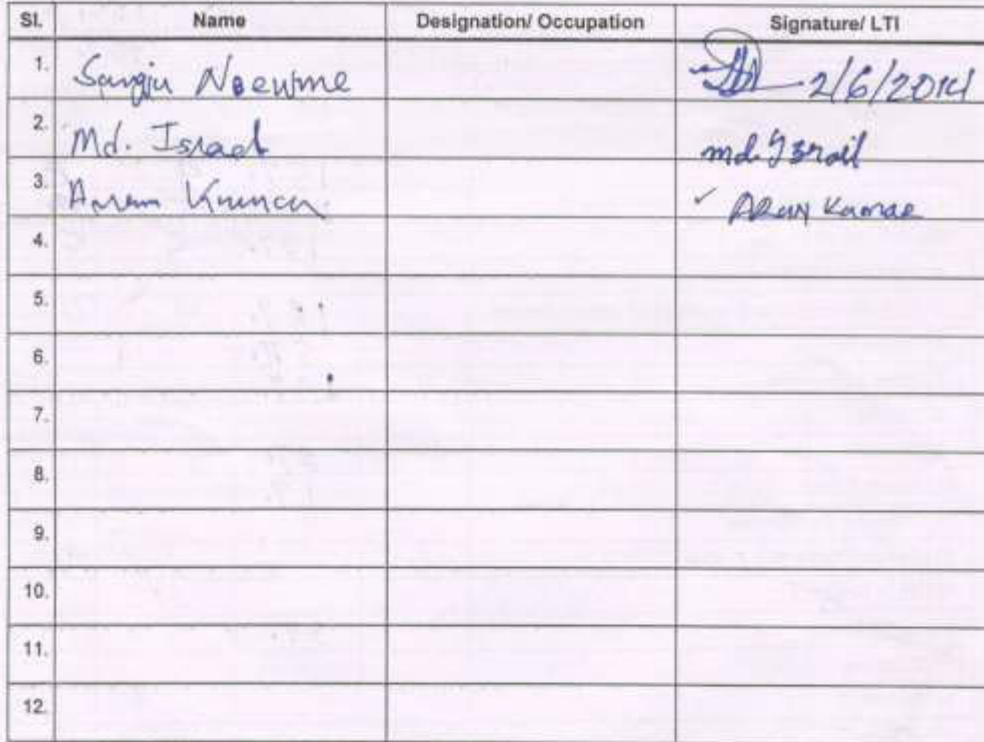 Sl. Name Designation/ Occupation Signature/ LTI
1. 2/6/2014
2. Md. Israel md. Israil
3. Kumar Kumar
4.
5.
6.
7.
8.
9.
10.
11.
12.